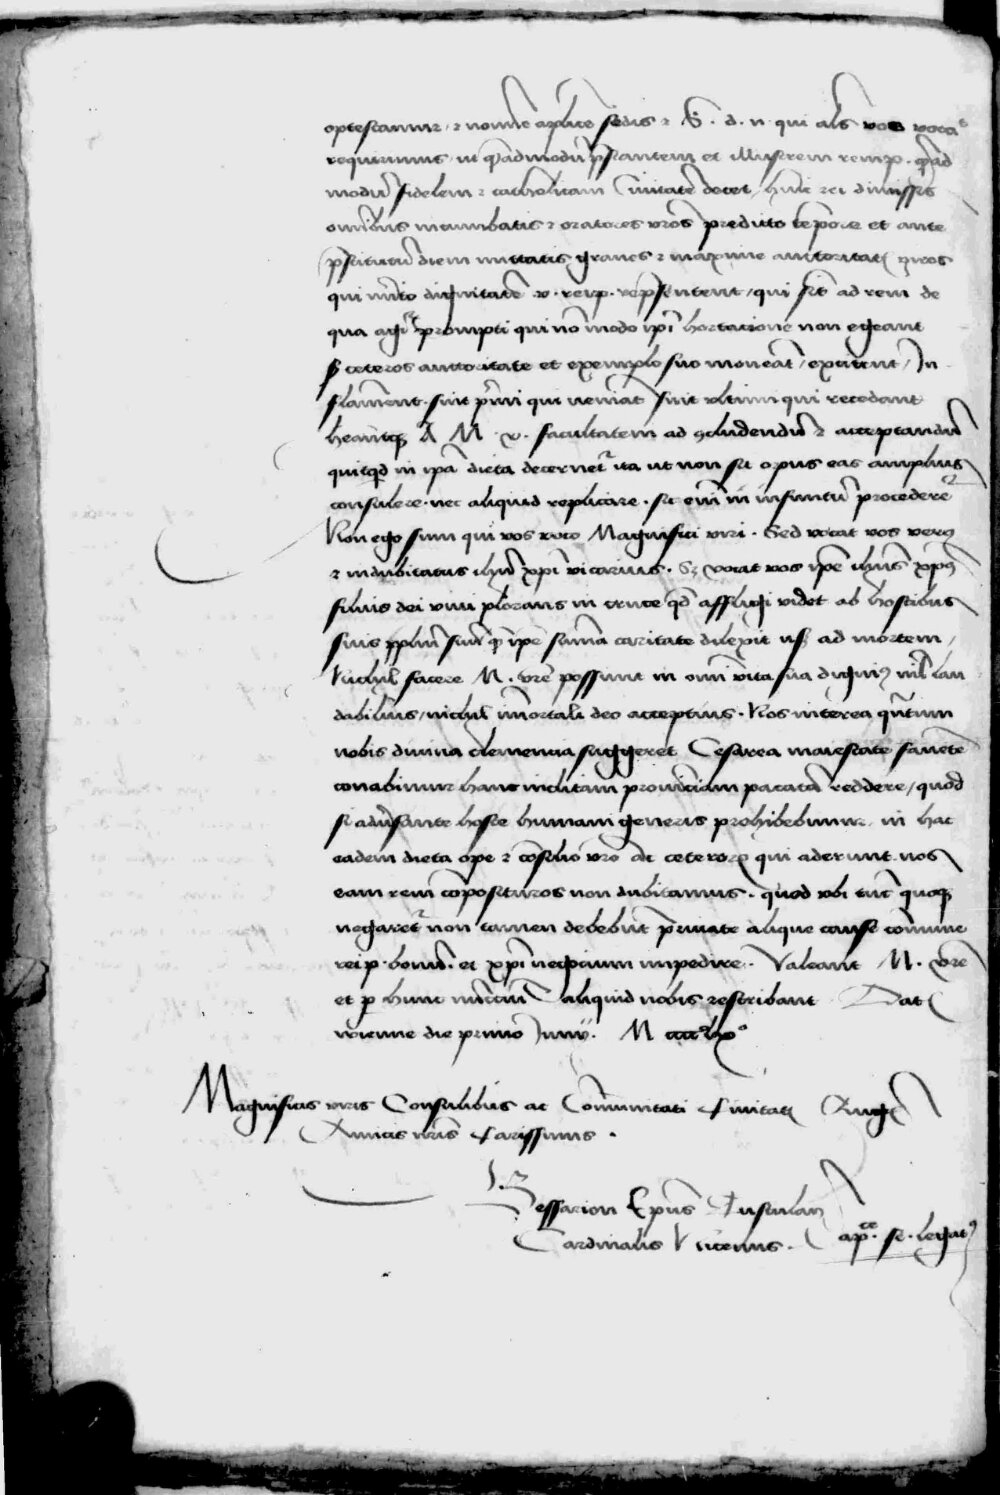 optestamur, et nomine aplice sedis et S. d. n. qui als vos vocat
requirimus, ut quadmodu pstantem et illustrem remp. quad
modu fidelem et catholicam Civitate decet, huic rei
omibus incumbatis et oratores vros predicto tempore et ante
pstitutu diem mittatis graves et maxime auctoritatis viros
qui mito dignitate v. reip. repsentent, qui sint ad rem de
qua agit prompti qui no modo ipi hortatione non egeant
sed ceteros auctoritate et exemplo suo moneat, excitent, In
flament. sint primi qui veniat sint ultimi qui recedant
heantque A M. v. facultatem ad concludendu et acceptandu
quitqd in ipa dieta decernet ita ut non sit opus eas amplius
consulere. nec aliquid replicare. sic eni in infinitu procederet
Non ego sum qui vos voco Magnifici viri. Sed vocat vos verus
et indubitatus ihu xpi vicarius. Sed vocat vos ipe ihus xpus
filius dei vivi plorans in cruce qd affligi videt ab hostibus
suis pplum suu que ipe suma caritate dilexit usque ad mortem,
Nichil facere M. vre possunt in omi vita sua dignius nil lau
dabilius, nichil imortali deo acceptius. Nos interea quatum
nobis divina clemencia suggeret Cesarea maiestate favete
conabimur hanc inclitam provinciam pacata reddere, quod
si adversante hoste humani generis prohibebimur, in hac
eadem dieta ope et consilio vro ac ceterorum qui aderunt nos
eam rem composituros non dubitamus. quod ubi tuc quoque
negaret non tamen debebut private alique cause comune
reip. bonu. et xpi negocium impedire. Valeant M. vre
et p hunc nuctiu aliquid nobis rescribant Dat
wienne die primo Junii. M cccclxo
Magnificis viris Consulibus ac Comunitati Civitatis
Amicis nris Carissimis.
J. Bessarion Epus Tusculan
Cardinalis Nicenus. apce. se. legatus